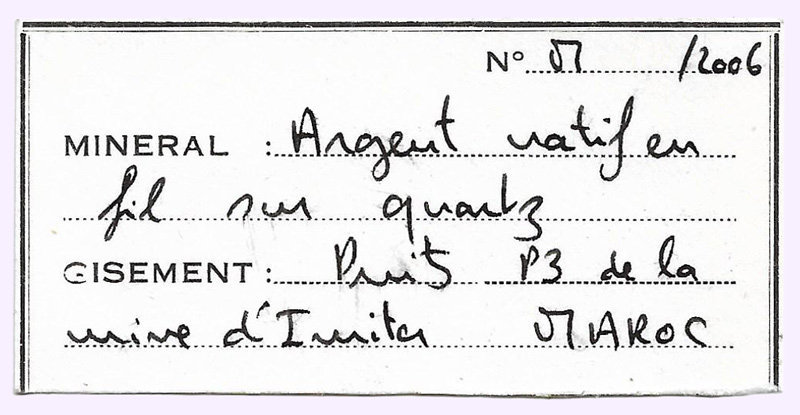 N° M /2006
MINERAL : Argent natif en
fil sur quartz
GISEMENT : Puits P3 de la
mine d'Imiter MAROC